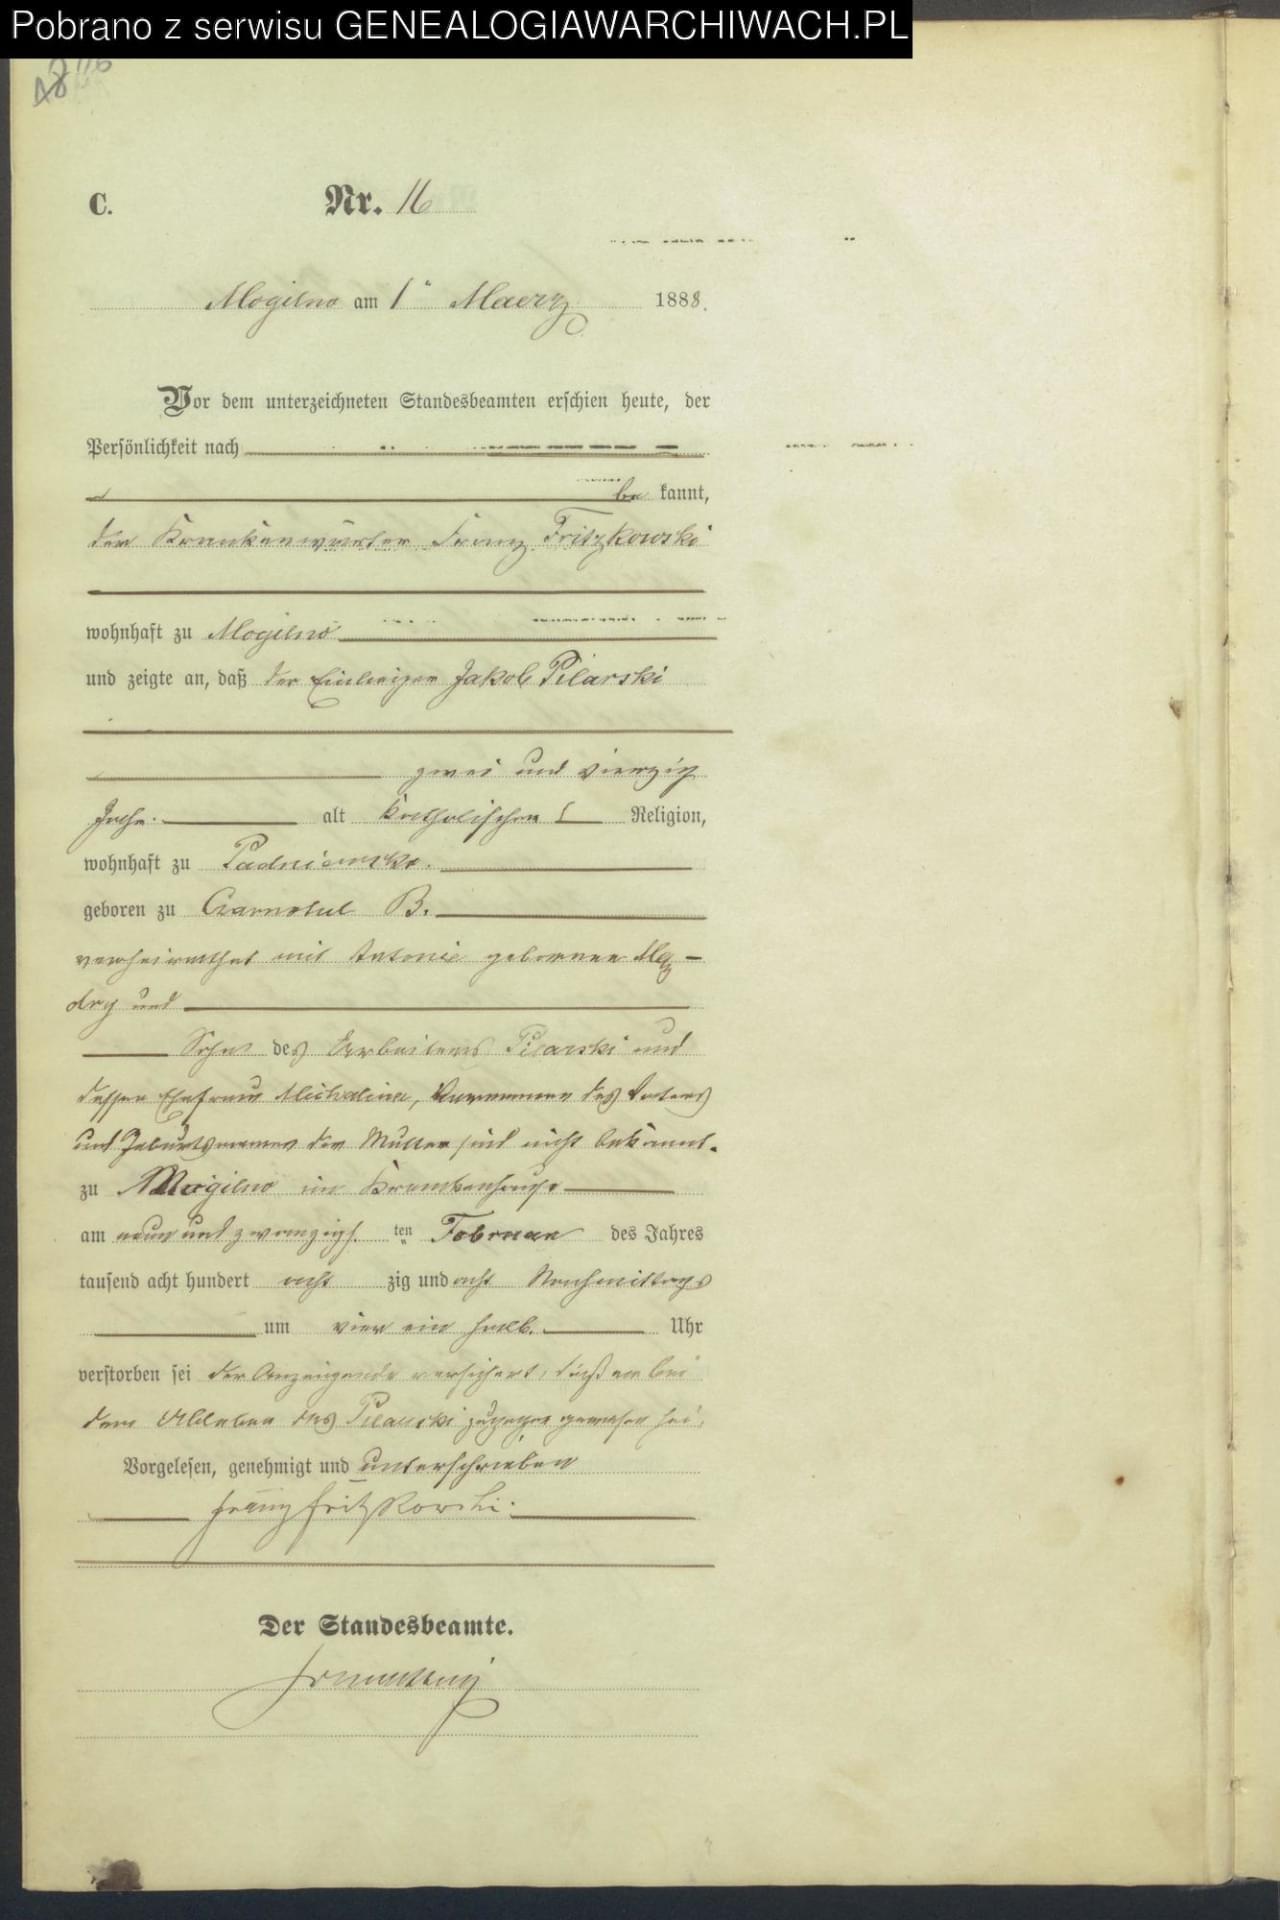 Pobrano z serwisu GENEALOGIAWARCHIWACH.PL
C. Nr. 16
Mogilno am 1" Maerz 1888.
Vor dem unterzeichneten Standesbeamten erschien heute, der
Persönlichkeit nach
be kannt,
der Krankenwärter Franz Fritzkowski
wohnhaft zu Mogilno
und zeigte an, daß der Einlieger Jakob Pilarski
zwei und vierzig
Jahr alt katholischer Religion,
wohnhaft zu Padniewko.
geboren zu Czarnotul B.
verheirathet mit Antonie geborenen Mą-
dry und
Sohn des Arbeiters Pilarski und
dessen Ehefrau Michalina, Vornamen des Vaters
und Geburtsnamen der Mutter sind nicht bekannt.
zu Mogilno im Krankenhause
am neun und zwanzigs. ten Februar des Jahres
tausend acht hundert acht zig und acht Nachmittags
um vier ein halb. Uhr
verstorben sei der Anzeigende versichert, daß er bei
dem Ableben des Pilarski zugegen gewesen sei.
Vorgelesen, genehmigt und unterschrieben
Franz Fritzkowski.
Der Standesbeamte.